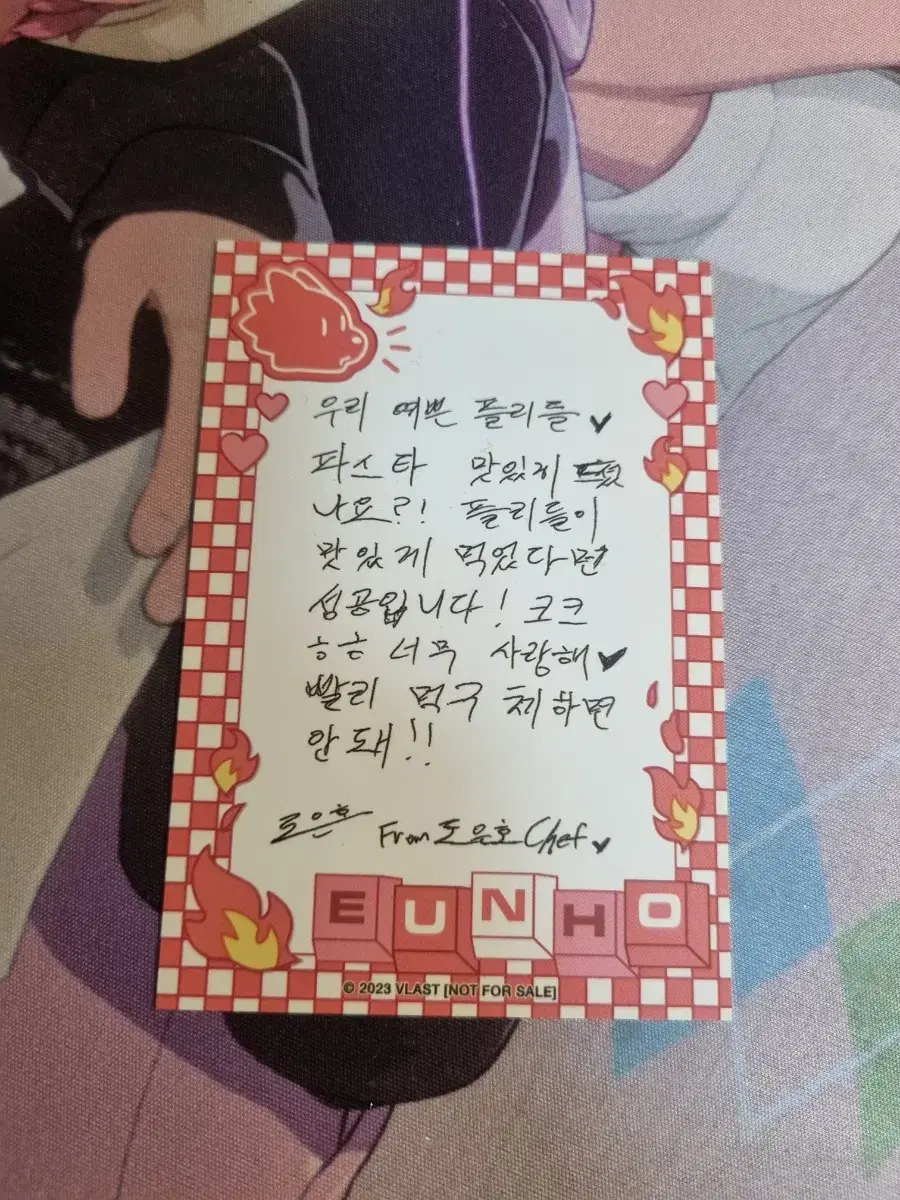 우리 예쁜 플리들♥
파스타 맛있게 드셨
나요?! 플리들이
맛있게 먹었다면
성공입니다! 크크
ㅎㅎ 너무 사랑해♥
빨리 먹구 체하면
안 돼!!
도은호 From 도은호 Chef♥
EUNHO
© 2023 VLAST [NOT FOR SALE]